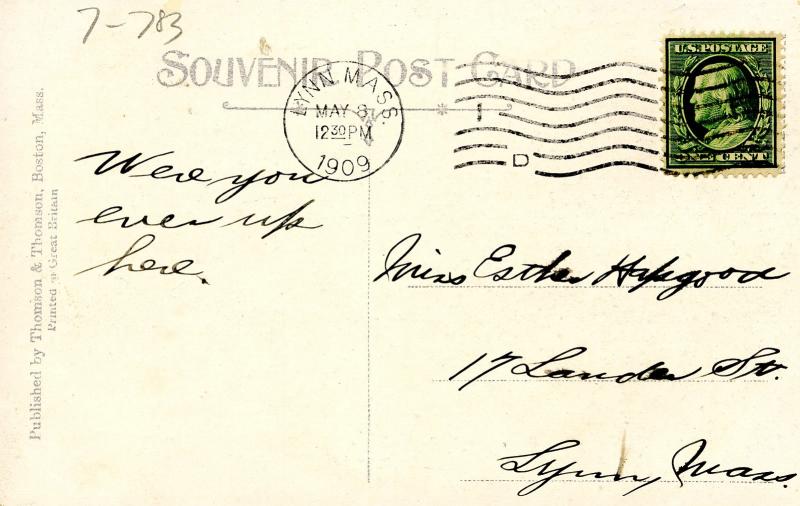 7-783
SOUVENIR POST CARD
LYNN, MASS.
MAY 8
12 30 PM
1909
1
D
U.S. POSTAGE
ONE CENT
Were you
ever up
here.
Miss Esther Hapgood
17 Lander St.
Lynn, Mass.
Published by Thomson & Thomson, Boston, Mass.
Printed in Great Britain